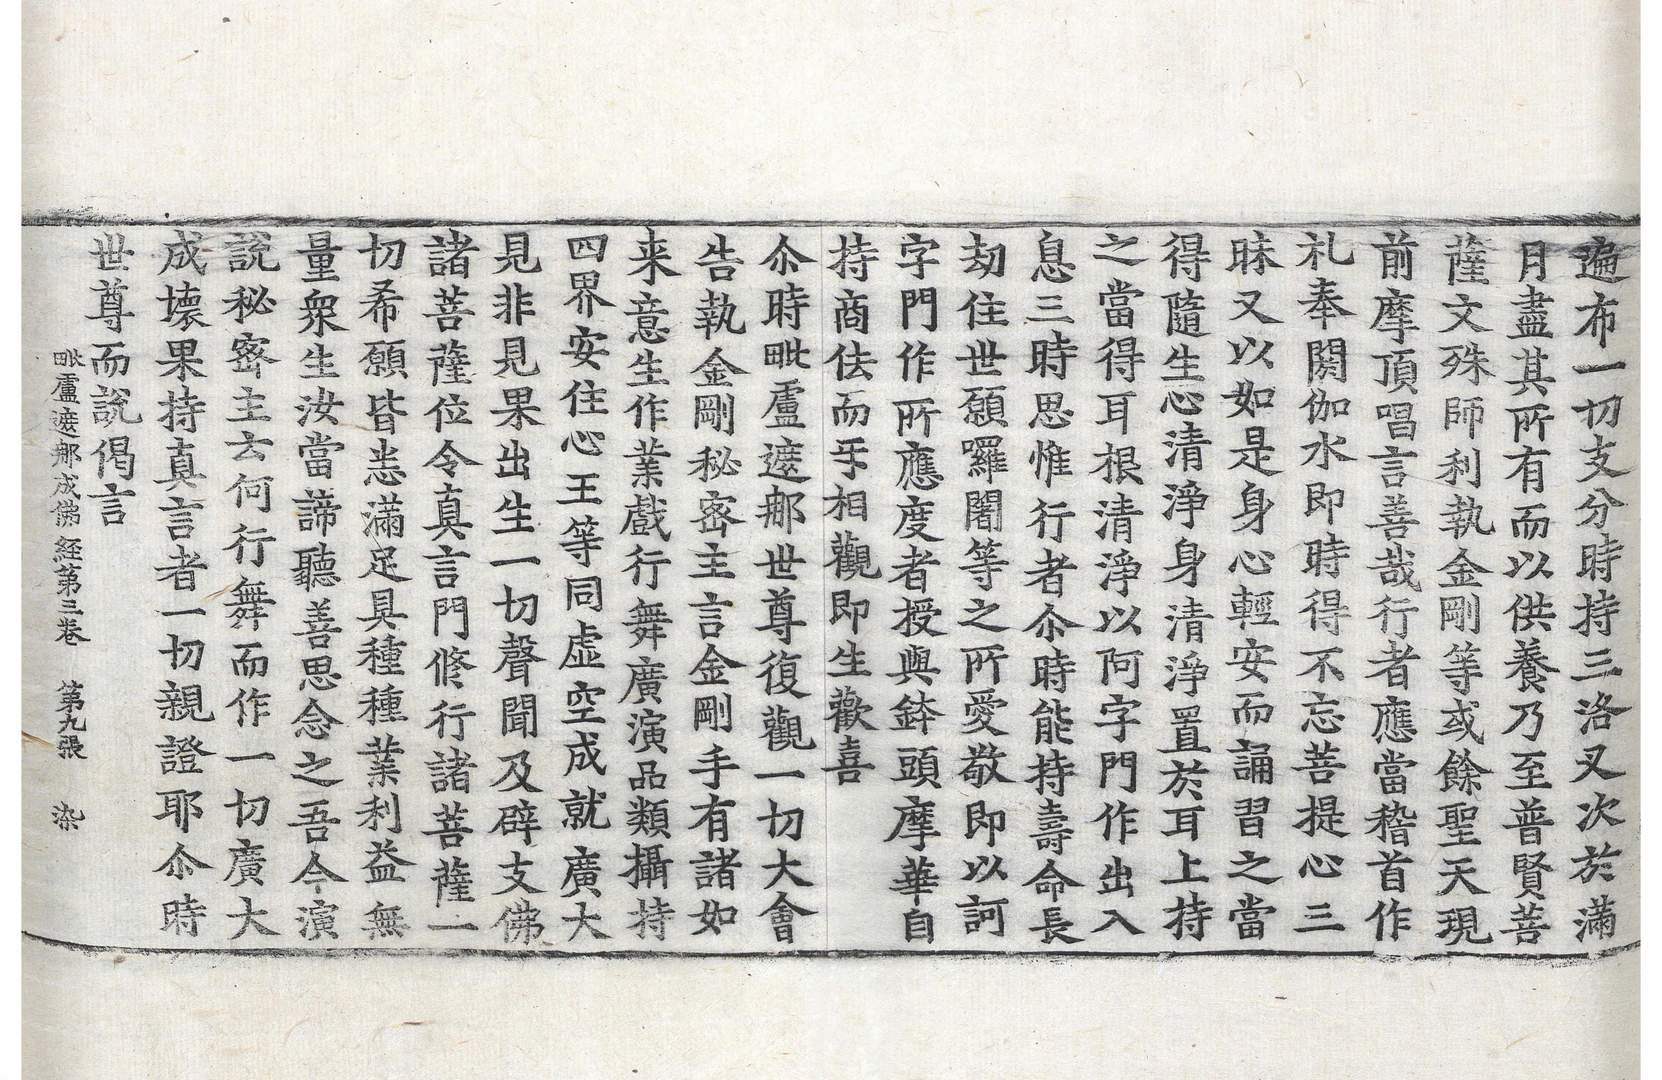 遍布一切支分時持三洛叉次於滿
月盡其所有而以供養乃至普賢菩
薩文殊師利執金剛等或餘聖天現
前摩頂唱言善哉行者應當稽首作
礼奉閼伽水即時得不忘菩提心三
昧又以如是身心輕安而誦習之當
得隨生心清淨身清淨置於耳上持
之當得耳根清淨以阿字門作出入
息三時思惟行者尒時能持壽命長
劫住世願囉闍等之所愛敬即以訶
字門作所應度者授與鉢頭摩華自
持商佉而㸦相觀即生歡喜
尒時毗盧遮那世尊復觀一切大會
告執金剛秘密主言金剛手有諸如
来意生作業戲行舞廣演品類攝持
四界安住心王等同虛空成就廣大
見非見果出生一切聲聞及辟支佛
諸菩薩位令真言門修行諸菩薩一
切希願皆悉滿足具種種業利益無
量衆生汝當諦聽善思念之吾今演
說秘密主云何行舞而作一切廣大
成壞果持真言者一切親證耶尒時
世尊而說偈言
毗盧遮那成佛経第三卷 第九張 染